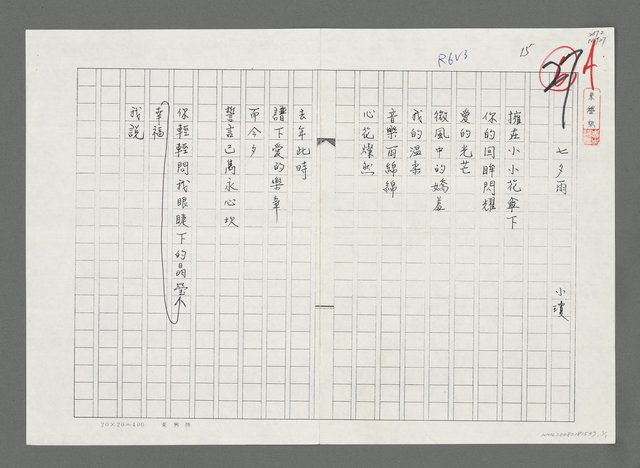 R6V3
15
七夕雨
小瓊
擁在小小花傘下
你的回眸閃耀
愛的光芒
微風中的嬌羞
我的溫柔
音樂雨綿綿
心花燦然
去年此時
譜下愛的樂章
而今夕
誓言已為永心坎
你輕輕問我眼睫下的晶瑩
幸福
我說
20×20=400